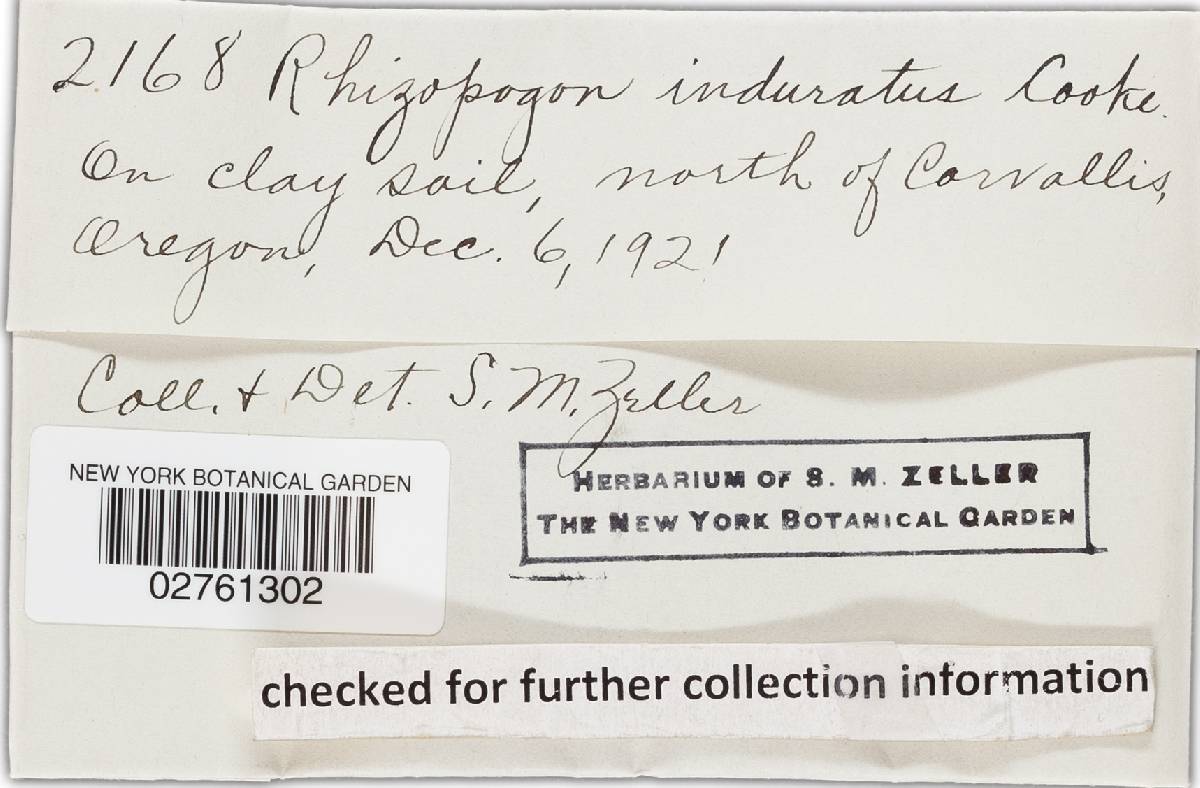 2168 Rhizopogon induratus Cooke.
On clay soil, north of Corvallis,
Oregon, Dec. 6, 1921
Coll. & Det. S. M. Zeller
NEW YORK BOTANICAL GARDEN
02761302
HERBARIUM OF S. M. ZELLER
THE NEW YORK BOTANICAL GARDEN
checked for further collection information